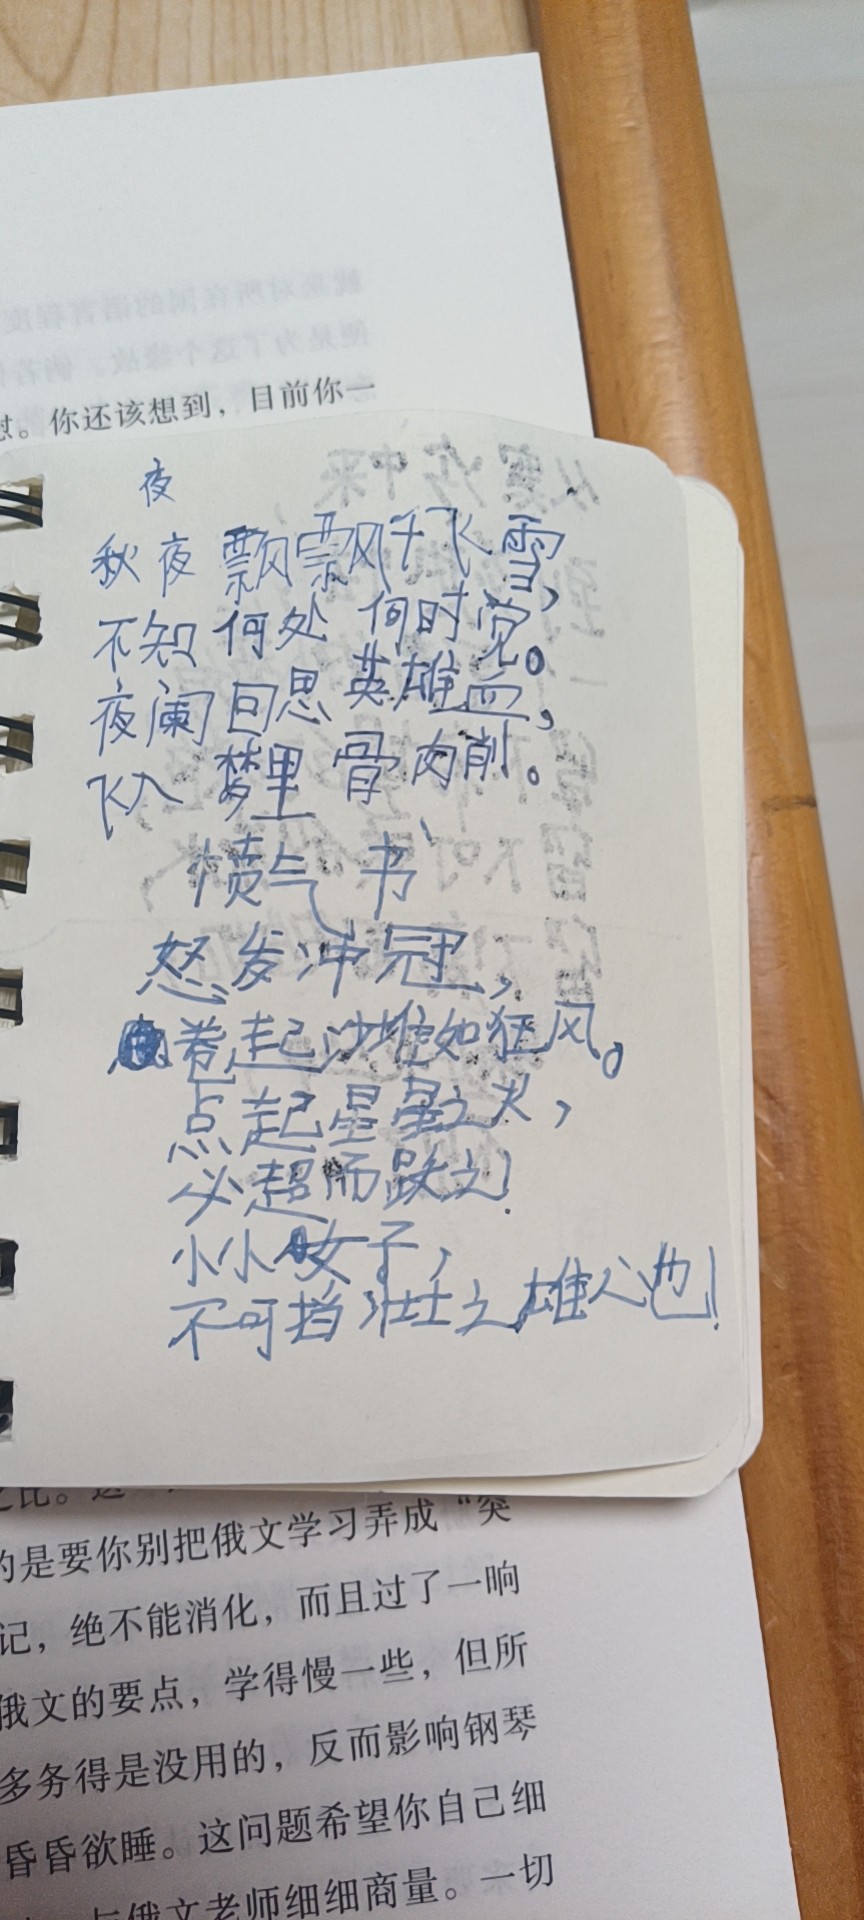 慰。你还该想到，目前你一
夜
秋夜飘飘风千飞雪，
不知何处何时觉。
夜阑回思英雄血，
飞入梦里骨肉削。
愤气书
怒发冲冠，
卷起沙堆如狂风。
点起星星之火，
必超而跌之！
小小女子，
不可挡壮士之雄心也！
的是要你别把俄文学习弄成“突
记，绝不能消化，而且过了一晌
俄文的要点，学得慢一些，但所
多务得是没用的，反而影响钢琴
昏昏欲睡。这问题希望你自己细
与俄文老师细细商量。一切